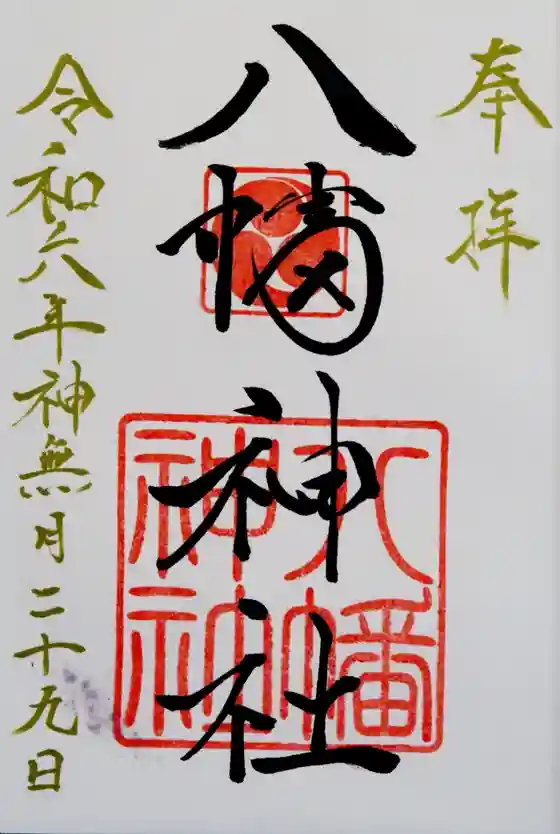 奉拝
八幡神社
八幡神社
令和六年神無月二十九日